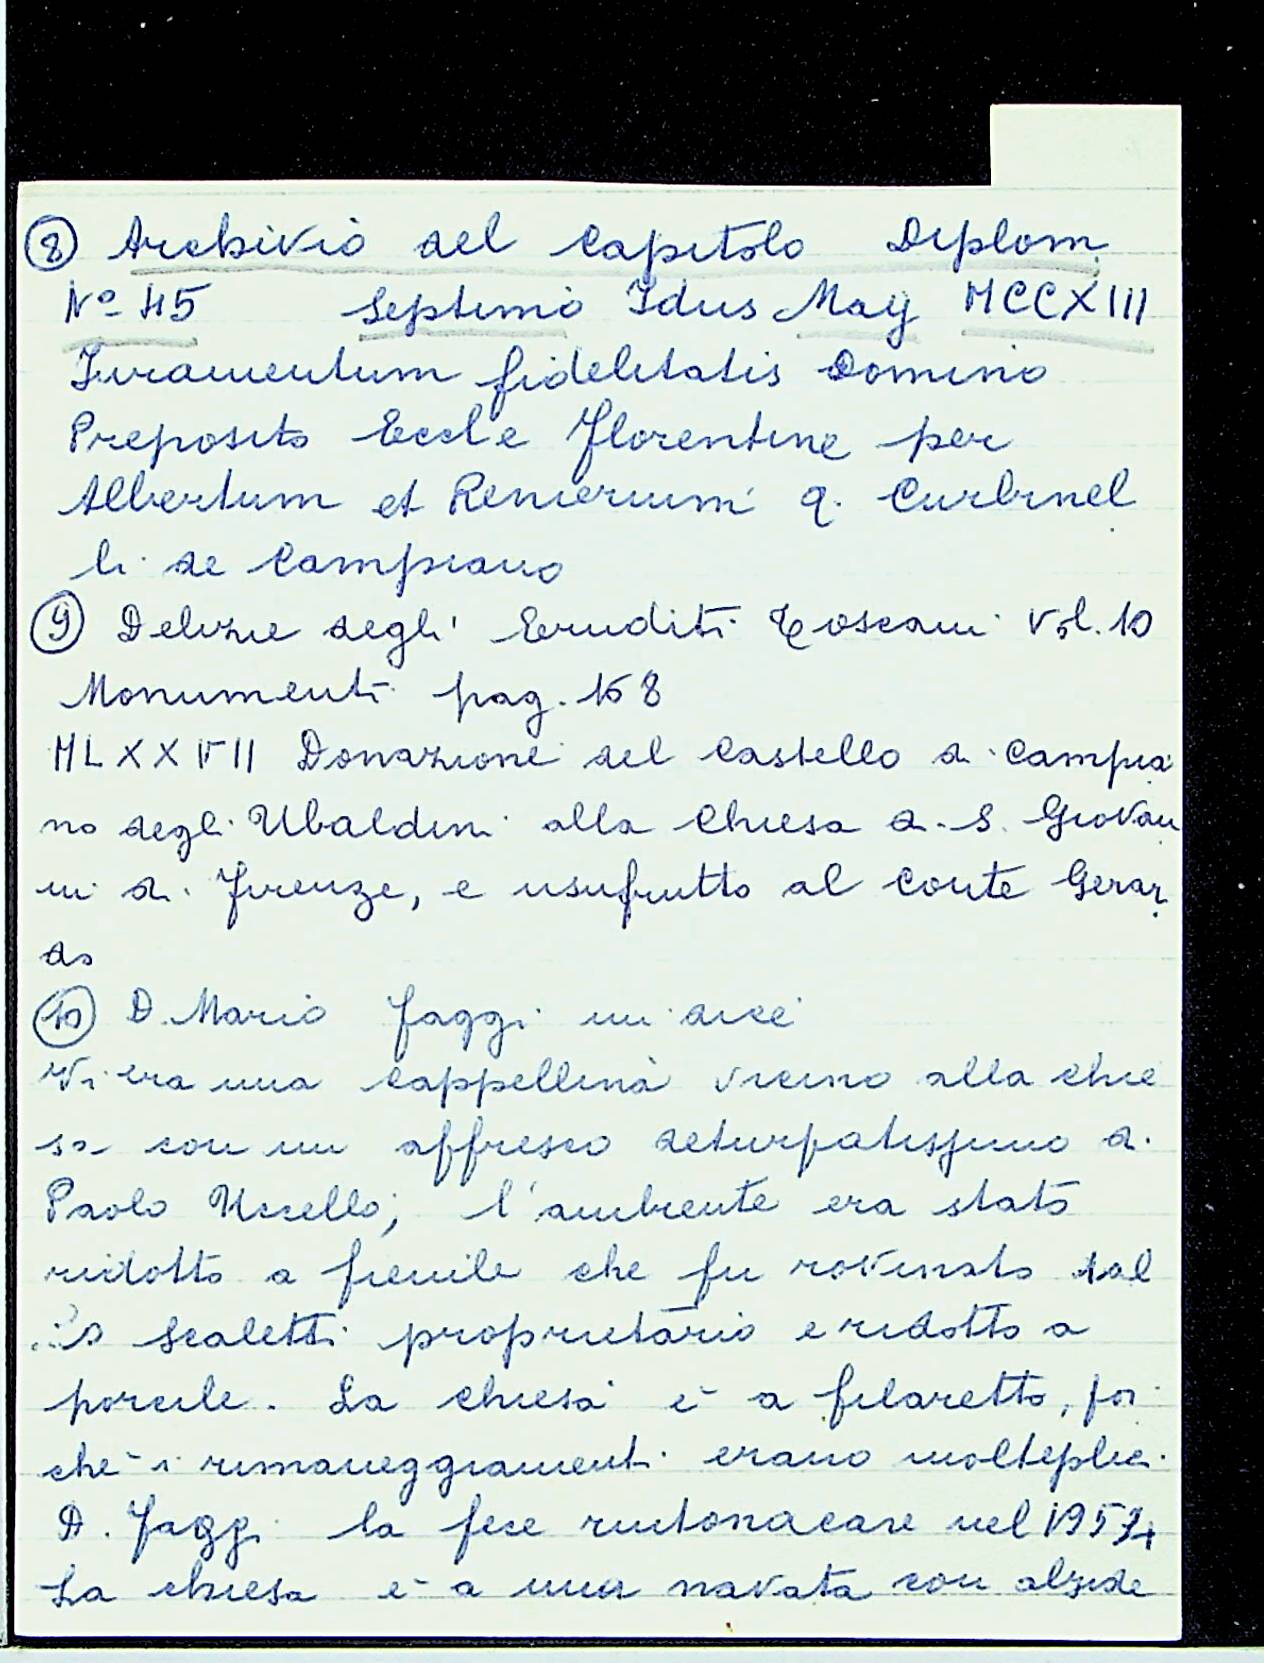 ⑧ Archivio del Capitolo Diplom.
Nº 45 Septimo Idus May MCCXIII
Juramentum fidelitatis Domino
Preposito Eccle Florentine per
Albertum et Renierium q. Curbinel
li de Campiano
⑨ Delizie degli Eruditi Toscani Vol. 10
Monumenti pag. 168
MLXXVII Donazione del castello di Campia
no degli Ubaldini alla Chiesa di S. Giovan
ni di Firenze, e usufrutto al conte Gerar
do
⑩ D. Mario Faggi mi dice
Vi era una cappellina vicino alla chie
sa con un affresco deturpatissimo di
Paolo Uccello; l'ambiente era stato
ridotto a fienile che fu rovinato dal
Scaletti proprietario e ridotto a
porcile. La chiesa è a filaretto, poi
chè i rimaneggiamenti erano molteplici
D. Faggi la fece rintonacare nel
La chiesa è a una navata con abside